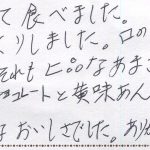 て食べました。
くりしました。口の
それも上品なあまさ
コレートと黄味あん
おいしさでした。あり